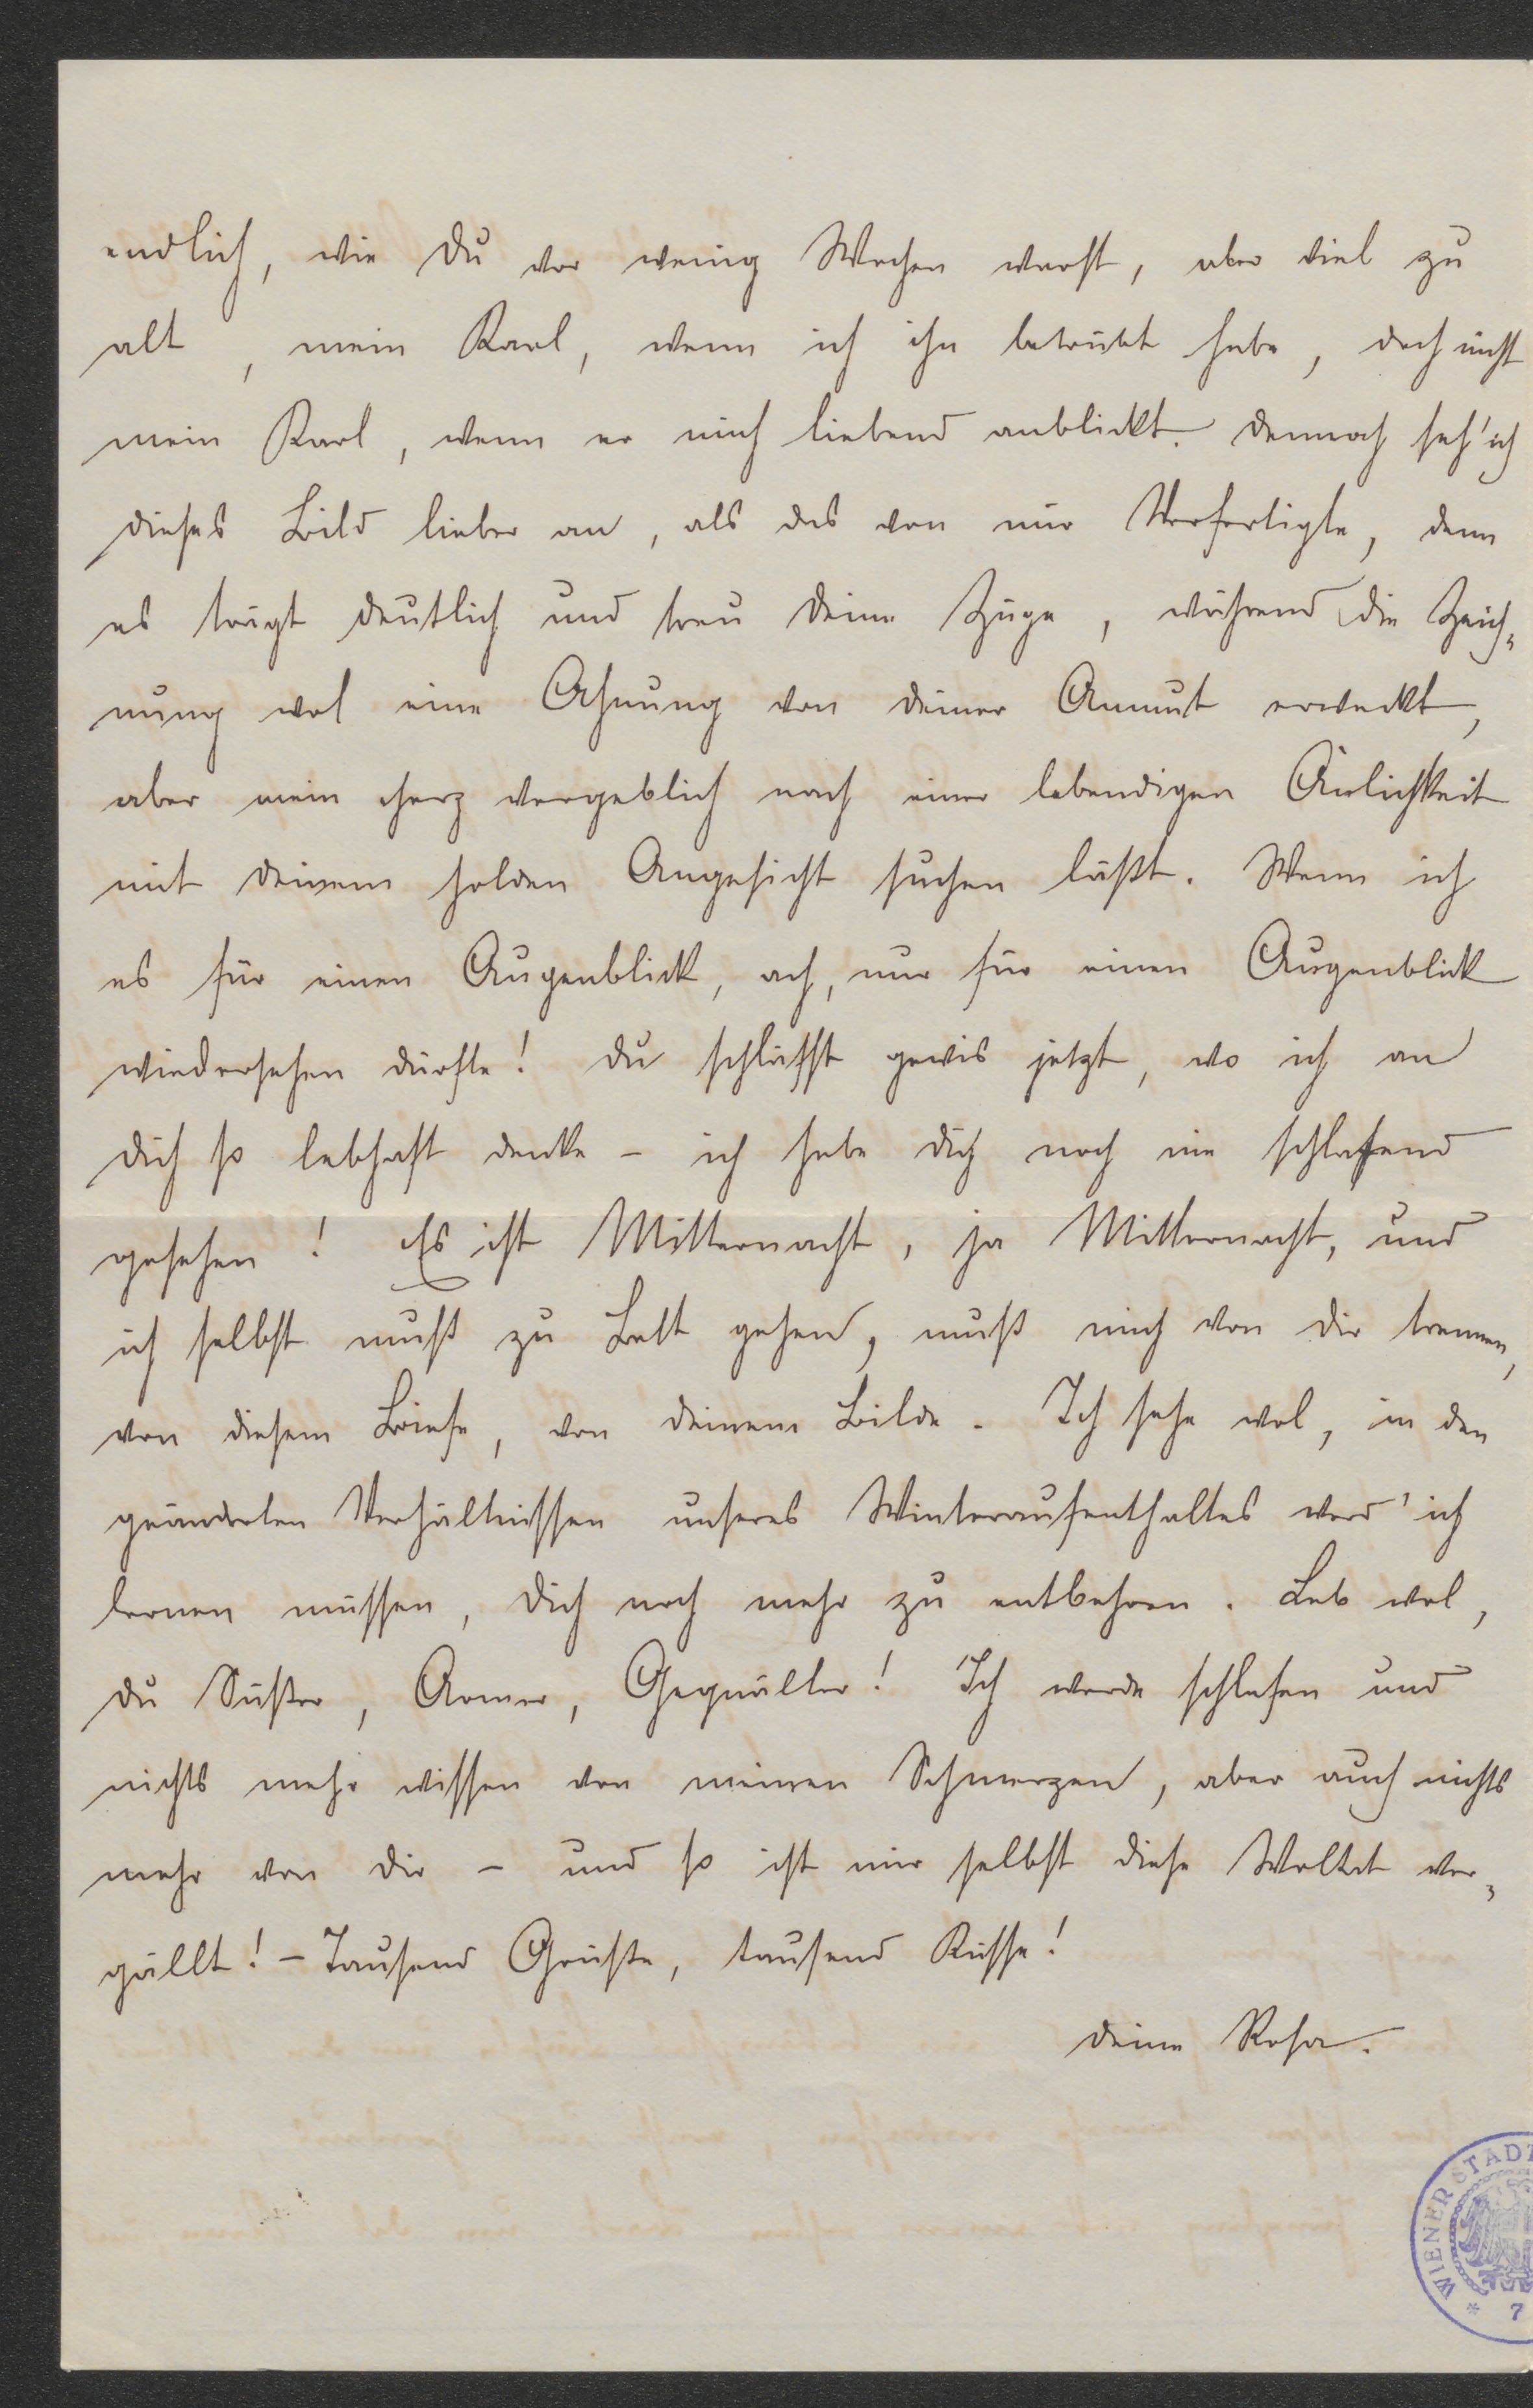 endlich, wie Du vor wenig Wochen warst, aber viel zu
alt, mein Karl, wenn ich ihn betrübt habe, doch nicht
mein Karl, wenn er mich liebend anblickt. Dennoch seh' ich
dieses Bild lieber an, als das von mir Verfertigte, denn
es trägt deutlich und treu Deine Züge, während die Zeich-
nung wol eine Ahnung von Deiner Anmut erweckt,
aber mein Herz vergeblich nach einer lebendigen Änlichkeit
mit Deinem holden Angesicht suchen läßt. Wenn ich
es für einen Augenblick, ach, nur für einen Augenblick
wiedersehen dürfte! Du schläfst gewis jetzt, wo ich an
Dich so lebhaft denke – ich habe Dich noch nie schlafend
gesehen! Es ist Mitternacht, ja Mitternacht, und
ich selbst muß zu Bett gehen, muß mich von Dir trennen,
von diesem Briefe, von Deinem Bilde. Ich sehe wol, in den
geänderten Verhältnissen unseres Winteraufenthaltes werd' ich
lernen müssen, Dich noch mehr zu entbehren. Leb wol,
Du Süßer, Armer, Gequälter! Ich werde schlafen und
nichts mehr wissen von meinen Schmerzen, aber auch nichts
mehr von Dir – und so ist mir selbst diese Woltat ver-
gällt! – Tausend Grüße, tausend Küsse!
Deine Rosa.
WIENER STADT
* 7